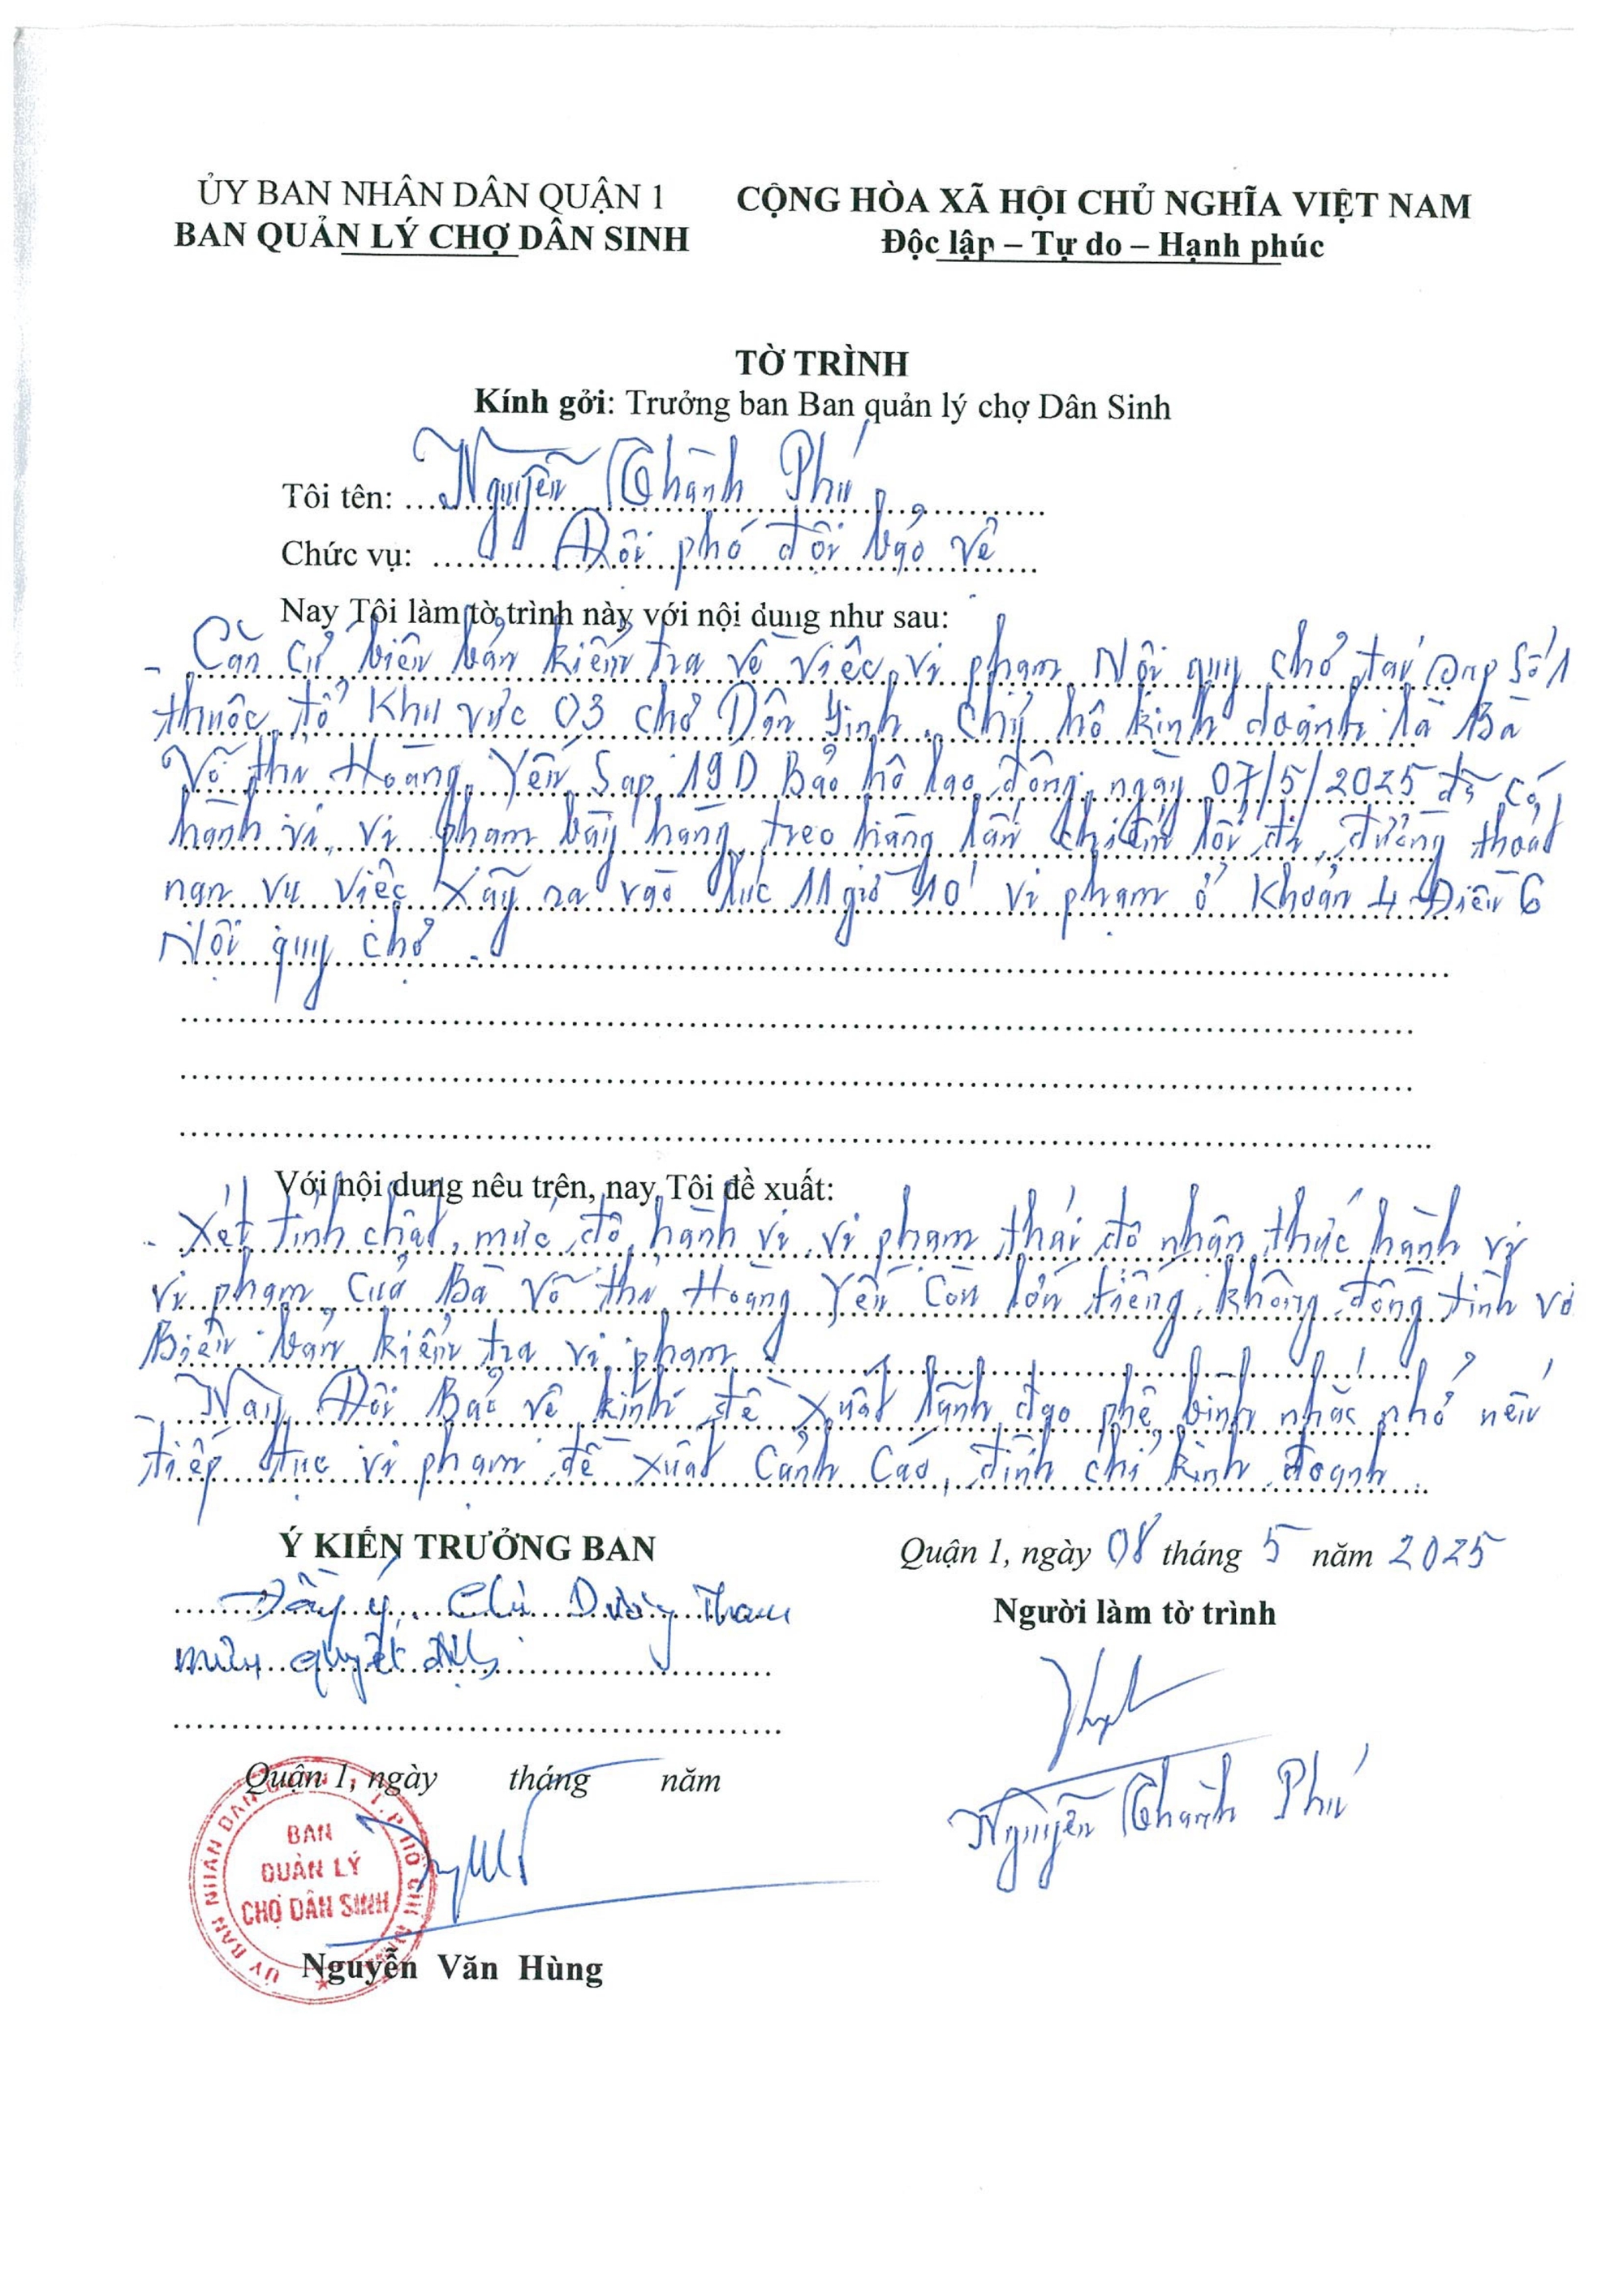 ỦY BAN NHÂN DÂN QUẬN 1
BAN QUẢN LÝ CHỢ DÂN SINH
CỘNG HÒA XÃ HỘI CHỦ NGHĨA VIỆT NAM
Độc lập – Tự do – Hạnh phúc
TỜ TRÌNH
Kính gởi: Trưởng ban Ban quản lý chợ Dân Sinh
Tôi tên: Nguyễn Thành Phú
Chức vụ: Đội phó đội bảo vệ
Nay Tôi làm tờ trình này với nội dung như sau:
- Căn cứ biên bản kiểm tra về việc vi phạm Nội quy chợ tại sạp Số 1
thuộc tổ Khu vực 03 chợ Dân Sinh. Chủ hộ kinh doanh là Bà
Võ Thị Hoàng Yến Sạp 19D Bảo hộ lao động, ngày 07/5/2025 đã có
hành vi, vi phạm bày hàng, treo hàng lấn chiếm lối đi, đường thoát
nạn vụ việc xảy ra vào lúc 11 giờ 10' vi phạm ở Khoản 4 Điều 6
Nội quy chợ.
Với nội dung nêu trên, nay Tôi đề xuất:
- Xét tính chất, mức độ, hành vi, vi phạm thái độ nhận thức hành vi
vi phạm của Bà Võ Thị Hoàng Yến còn lớn tiếng, không đồng tình với
Biên bản kiểm tra vi phạm.
- Nay Đội Bảo vệ kính đề xuất lãnh đạo phê bình nhắc nhở nếu
tiếp tục vi phạm đề xuất Cảnh Cáo, đình chỉ kinh doanh.
Ý KIẾN TRƯỞNG BAN
Đồng ý. Chú Dương Tham
mưu quyết định
Quận 1, ngày tháng năm
BAN
QUẢN LÝ
CHỢ DÂN SINH
Nguyễn Văn Hùng
Quận 1, ngày 08 tháng 5 năm 2025
Người làm tờ trình
Nguyễn Thành Phú